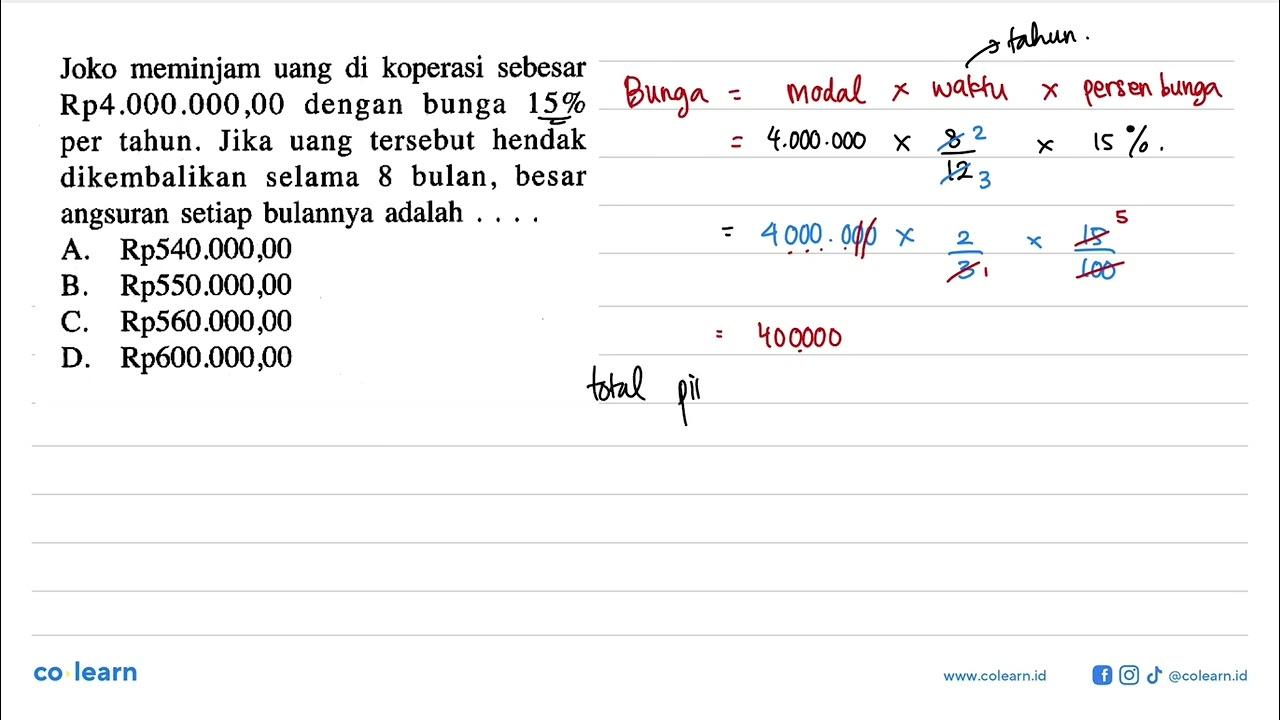 Joko meminjam uang di koperasi sebesar
Rp4.000.000,00 dengan bunga 15%
per tahun. Jika uang tersebut hendak
dikembalikan selama 8 bulan, besar
angsuran setiap bulannya adalah . . . .
A. Rp540.000,00
B. Rp550.000,00
C. Rp560.000,00
D. Rp600.000,00
tahun.
Bunga = modal x waktu x persen bunga
= 4.000.000 x 8/12 2/3 x 15%.
= 4000.000 x 2/3 1 x 15/100 5
= 400000
total pii
co learn
www.colearn.id
@colearn.id